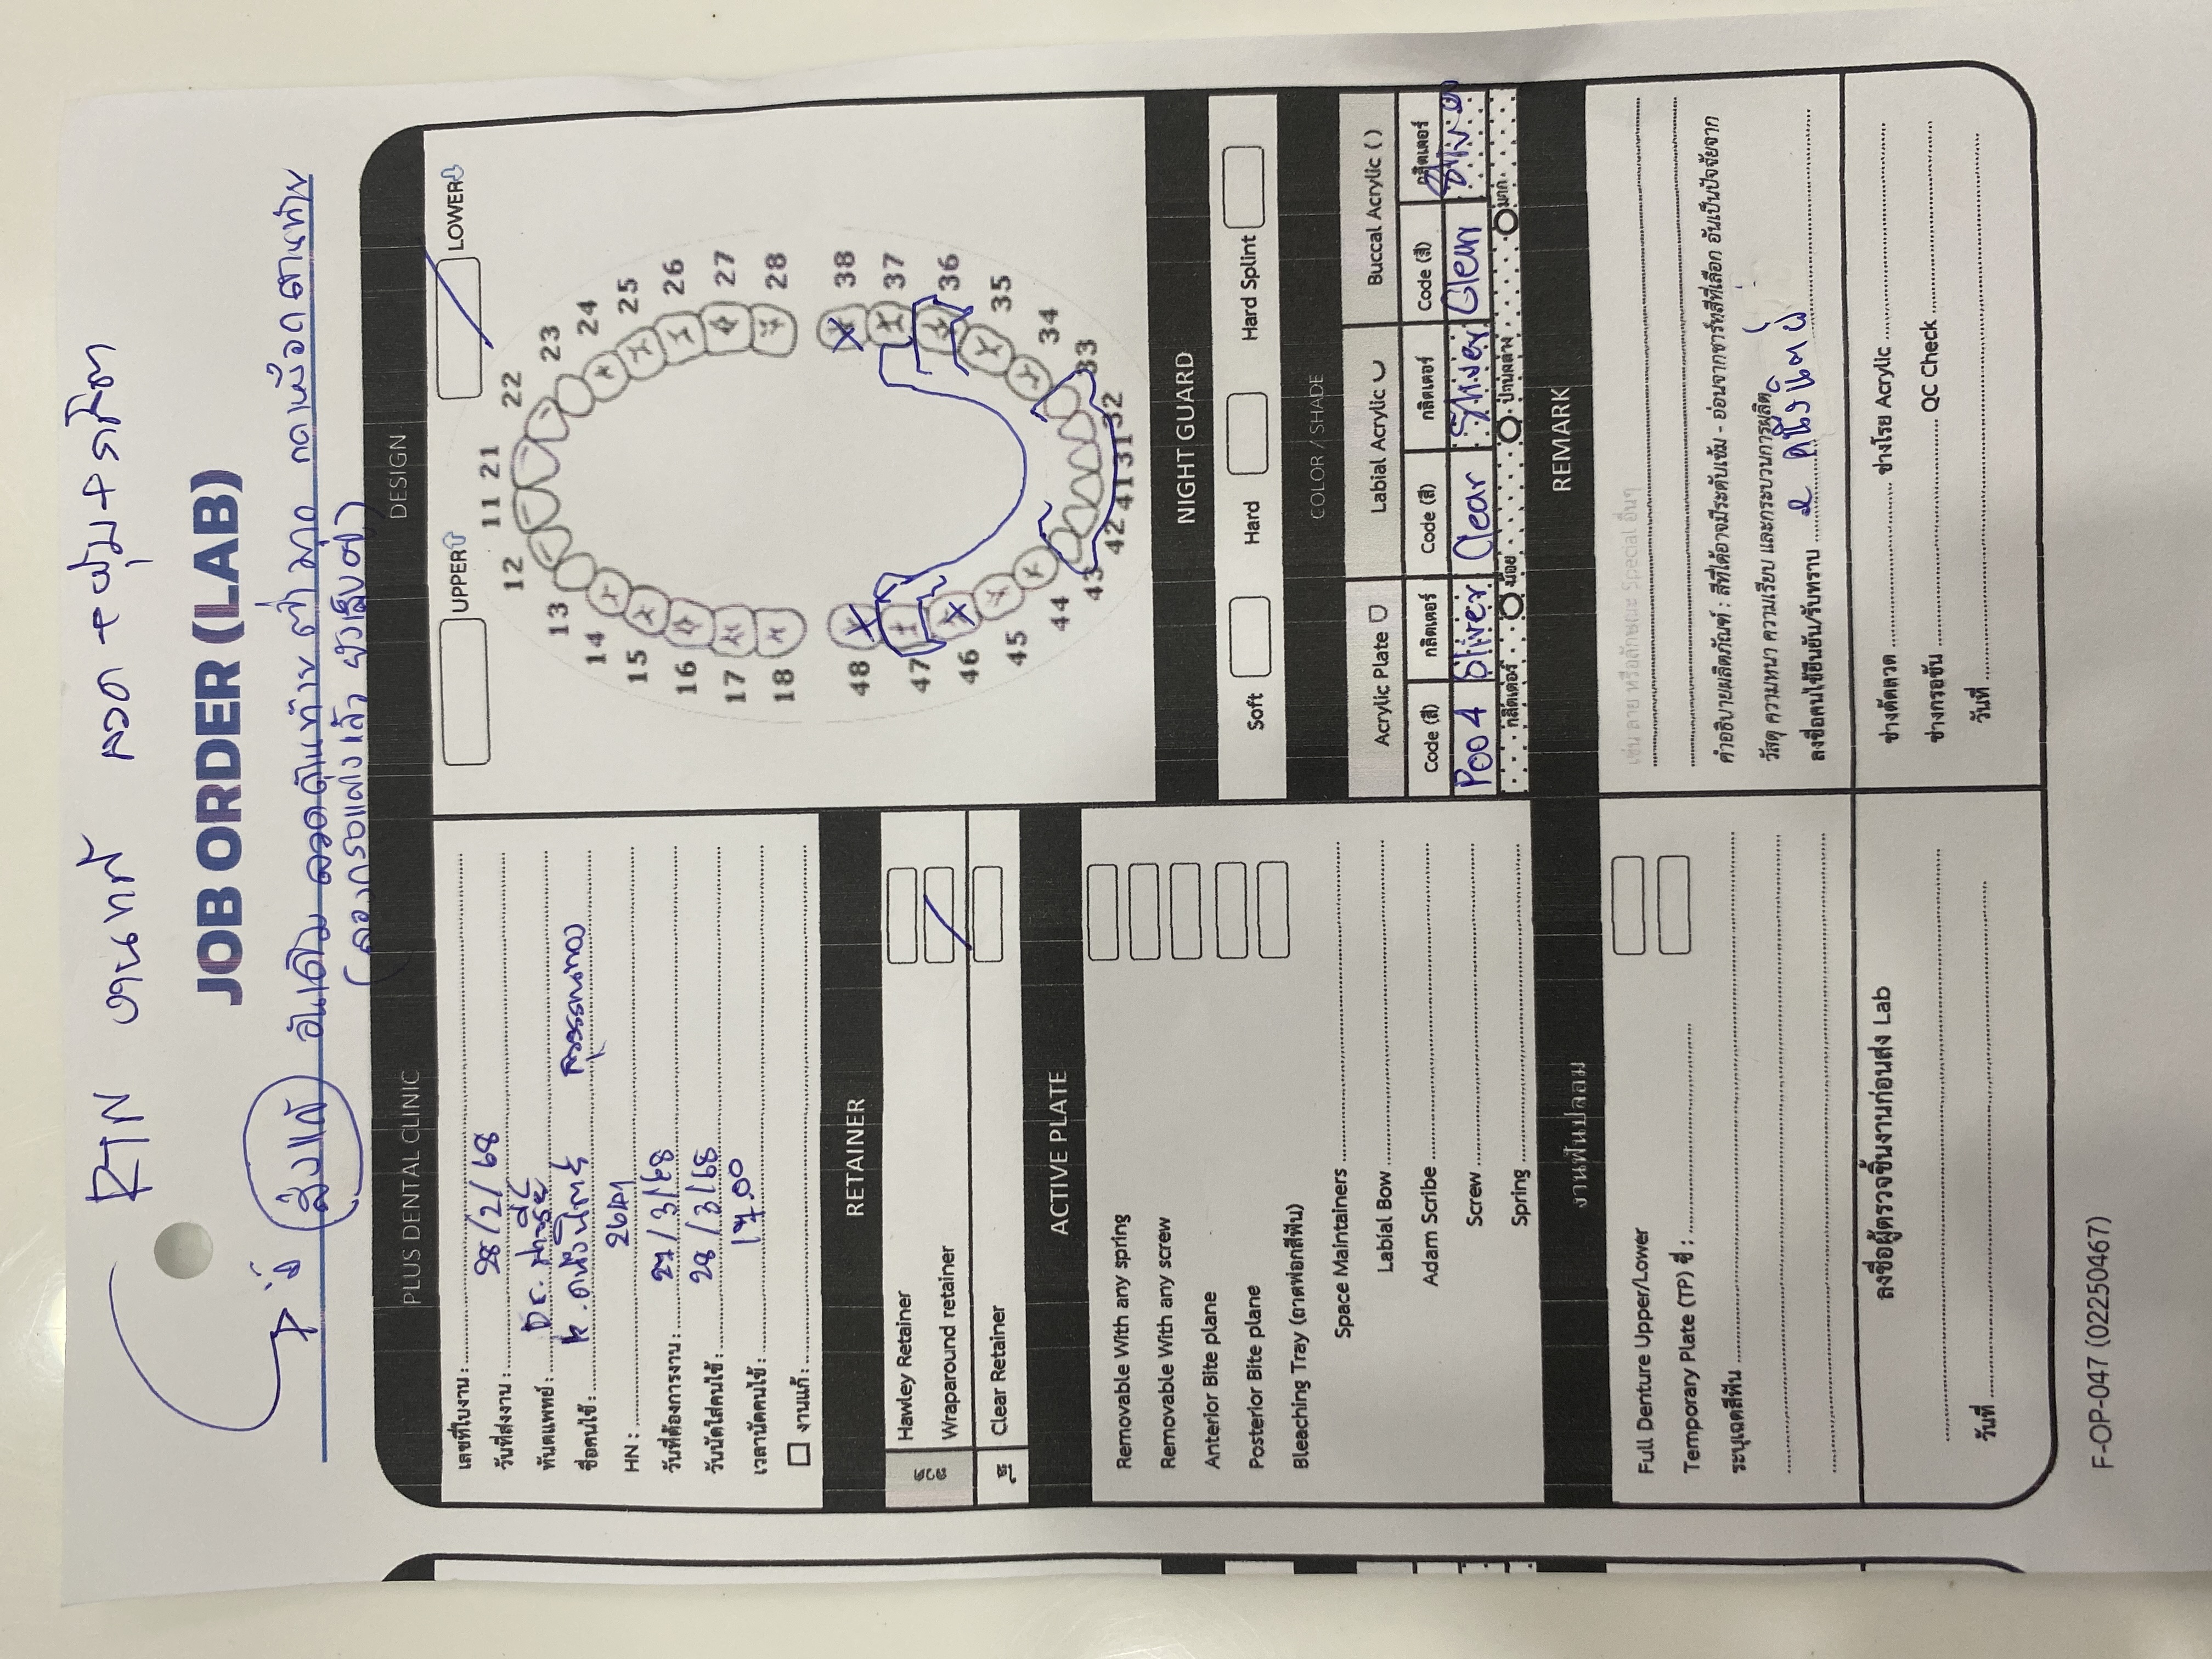 RTN งานทำ ลวด + ฟุ้ม + กลิตเตอร์
JOB ORDER (LAB)
ส่งแก้
PLUS DENTAL CLINIC
เลขที่ใบงาน :
วันที่ส่งงาน : 28/2/68
ทันตแพทย์ : Dr.
ชื่อคนไข้ : K.
HN :
วันที่ต้องการงาน : 27/3/68
วันนัดใส่คนไข้ : 28/3/68
เวลานัดคนไข้ : 17.00
งานแก้ :
RETAINER
ลวด
Hawley Retainer
Wraparound retainer
ใส
Clear Retainer
ACTIVE PLATE
Removable With any spring
Removable With any screw
Anterior Bite plane
Posterior Bite plane
Bleaching Tray (ถาดฟอกสีฟัน)
Space Maintainers
Labial Bow
Adam Scribe
Screw
Spring
งานฟันปลอม
Full Denture Upper/Lower
Temporary Plate (TP) ซี่ :
ระบุเฉดสีฟัน
ลงชื่อผู้ตรวจชิ้นงานก่อนส่ง Lab
วันที่
DESIGN
UPPER LOWER
11 21
12 22
13 23
14 24
15 25
16 26
17 27
18 28
48 38
47 37
46 36
45 35
44 34
43 33
42 41 31 32
NIGHT GUARD
Soft Hard Hard Splint
COLOR / SHADE
Acrylic Plate Labial Acrylic Buccal Acrylic ( )
Code (สี) กลิตเตอร์ Code (สี) กลิตเตอร์ Code (สี) กลิตเตอร์
P004 Silver Clear Silver Clear Silver
กลิตเตอร์ น้อย ปานกลาง มาก
REMARK
เช่น ลาย หรือลักษณะ Special อื่นๆ
คำอธิบายผลิตภัณฑ์ : สีที่ได้อาจมีระดับเข้ม - อ่อนจากชาร์ทสีที่เลือก อันเป็นปัจจัยจาก
วัสดุ ความหนา ความเรียบ และกระบวนการผลิต
ลงชื่อคนไข้ยืนยัน/รับทราบ
ช่างดัดลวด ช่างโรย Acrylic
ช่างกรอขัน QC Check
วันที่
F-OP-047 (02250467)